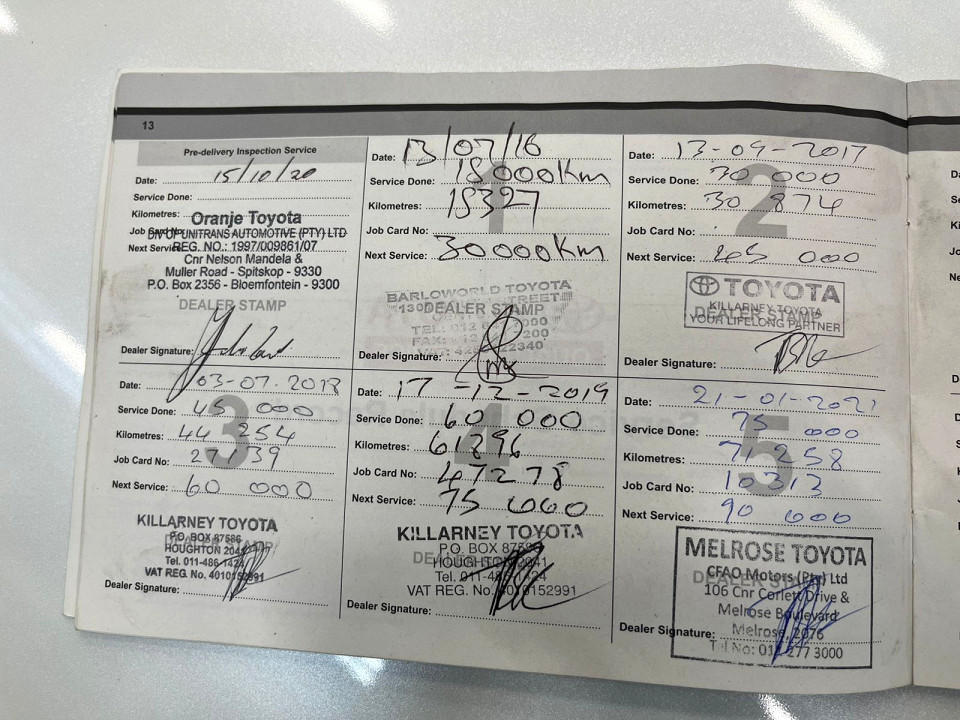 13
Pre-delivery Inspection Service
Date: 15/10/20
Service Done:
Kilometres:
Oranje Toyota
Job Card No:
DIV OF UNITRANS AUTOMOTIVE (PTY) LTD
Next Service:
REG. NO.: 1997/009861/07
Cnr Nelson Mandela &
Muller Road - Spitskop - 9330
P.O. Box 2356 - Bloemfontein - 9300
DEALER STAMP
Dealer Signature:
1
Date: 13/07/16
Service Done: 15000Km
Kilometres: 15327
Job Card No:
Next Service: 30000Km
BARLOWORLD TOYOTA
STREET
DEALER STAMP
Dealer Signature:
2
Date: 13-09-2017
Service Done: 30 000
Kilometres: 30 874
Job Card No:
Next Service: 45 000
TOYOTA
KILLARNEY TOYOTA
DEALER STAMP
YOUR LIFELONG PARTNER
Dealer Signature:
3
Date: 03-07-2018
Service Done: 45 000
Kilometres: 44 254
Job Card No: 27139
Next Service: 60 000
KILLARNEY TOYOTA
P.O. BOX 87586
DEALER STAMP
HOUGHTON 2041
Tel. 011-486-1424
VAT REG. No. 4010152991
Dealer Signature:
4
Date: 17-12-2019
Service Done: 60 000
Kilometres: 61296
Job Card No: 47278
Next Service: 75 000
KILLARNEY TOYOTA
P.O. BOX 87586
DEALER STAMP
HOUGHTON 2041
Tel. 011-486-1424
VAT REG. No. 4010152991
Dealer Signature:
5
Date: 21-01-2021
Service Done: 75 000
Kilometres: 71258
Job Card No: 10313
Next Service: 90 000
MELROSE TOYOTA
CFAO Motors (Pty) Ltd
DEALER STAMP
106 Cnr Corlett Drive &
Melrose Boulevard
Melrose, 2076
Tel No: 011 277 3000
Dealer Signature: